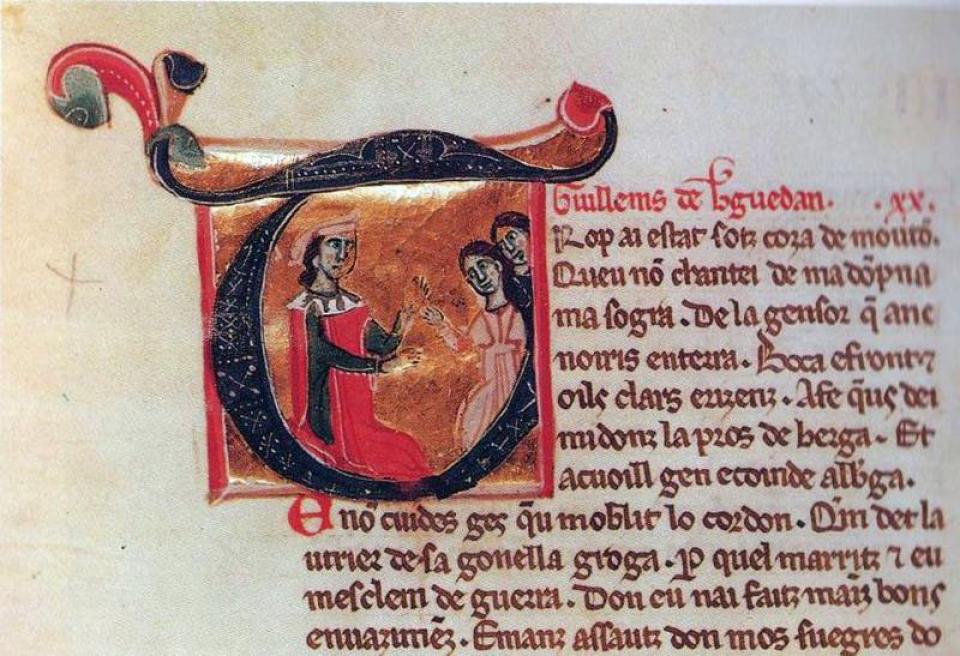 Guillems de bguedan. .xx.
Rop ai estat sotz coza de mouto.
Queu nō chantei de ma dōpna
ma sogra. De la gensor q̄ anc
noiris enterra. Boca efront ⁊
oils clars erizenz. Afe q̄us dei
midonz la pros de berga. Et
acuoill gen ecoinde albga.
E nō cuides ges q̄u moblit lo cordon. Q̄m det la
utrier de sa gonella groga. P quel marritz ⁊ eu
mesclem de guerra. Don eu nai faitz mainz bons
Emanz assautz don mos suegres do